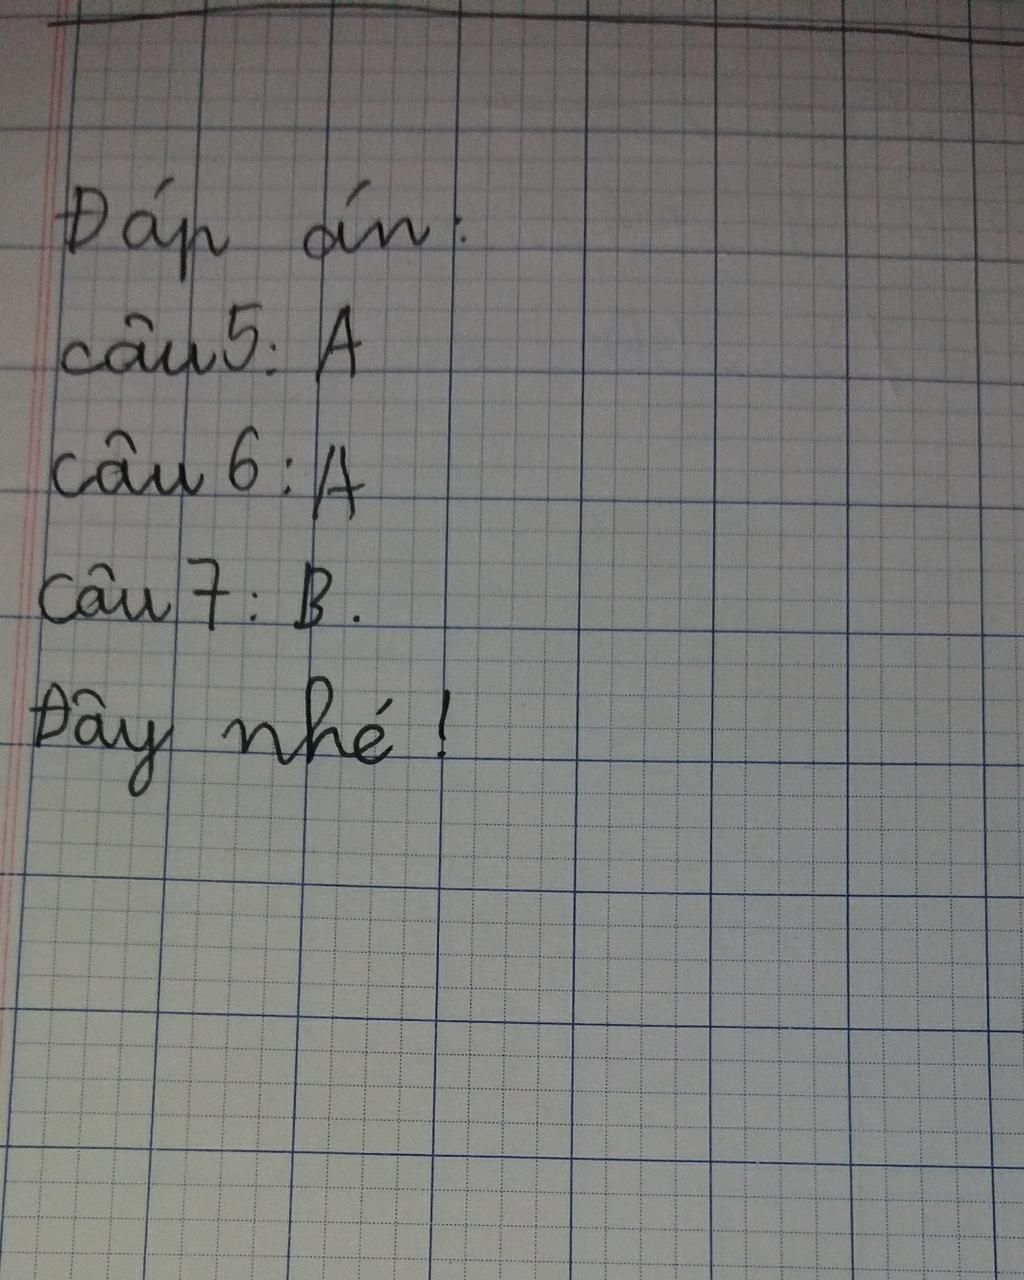 Đáp án:
câu 5: A
câu 6: A
câu 7: B.
Đây nhé!